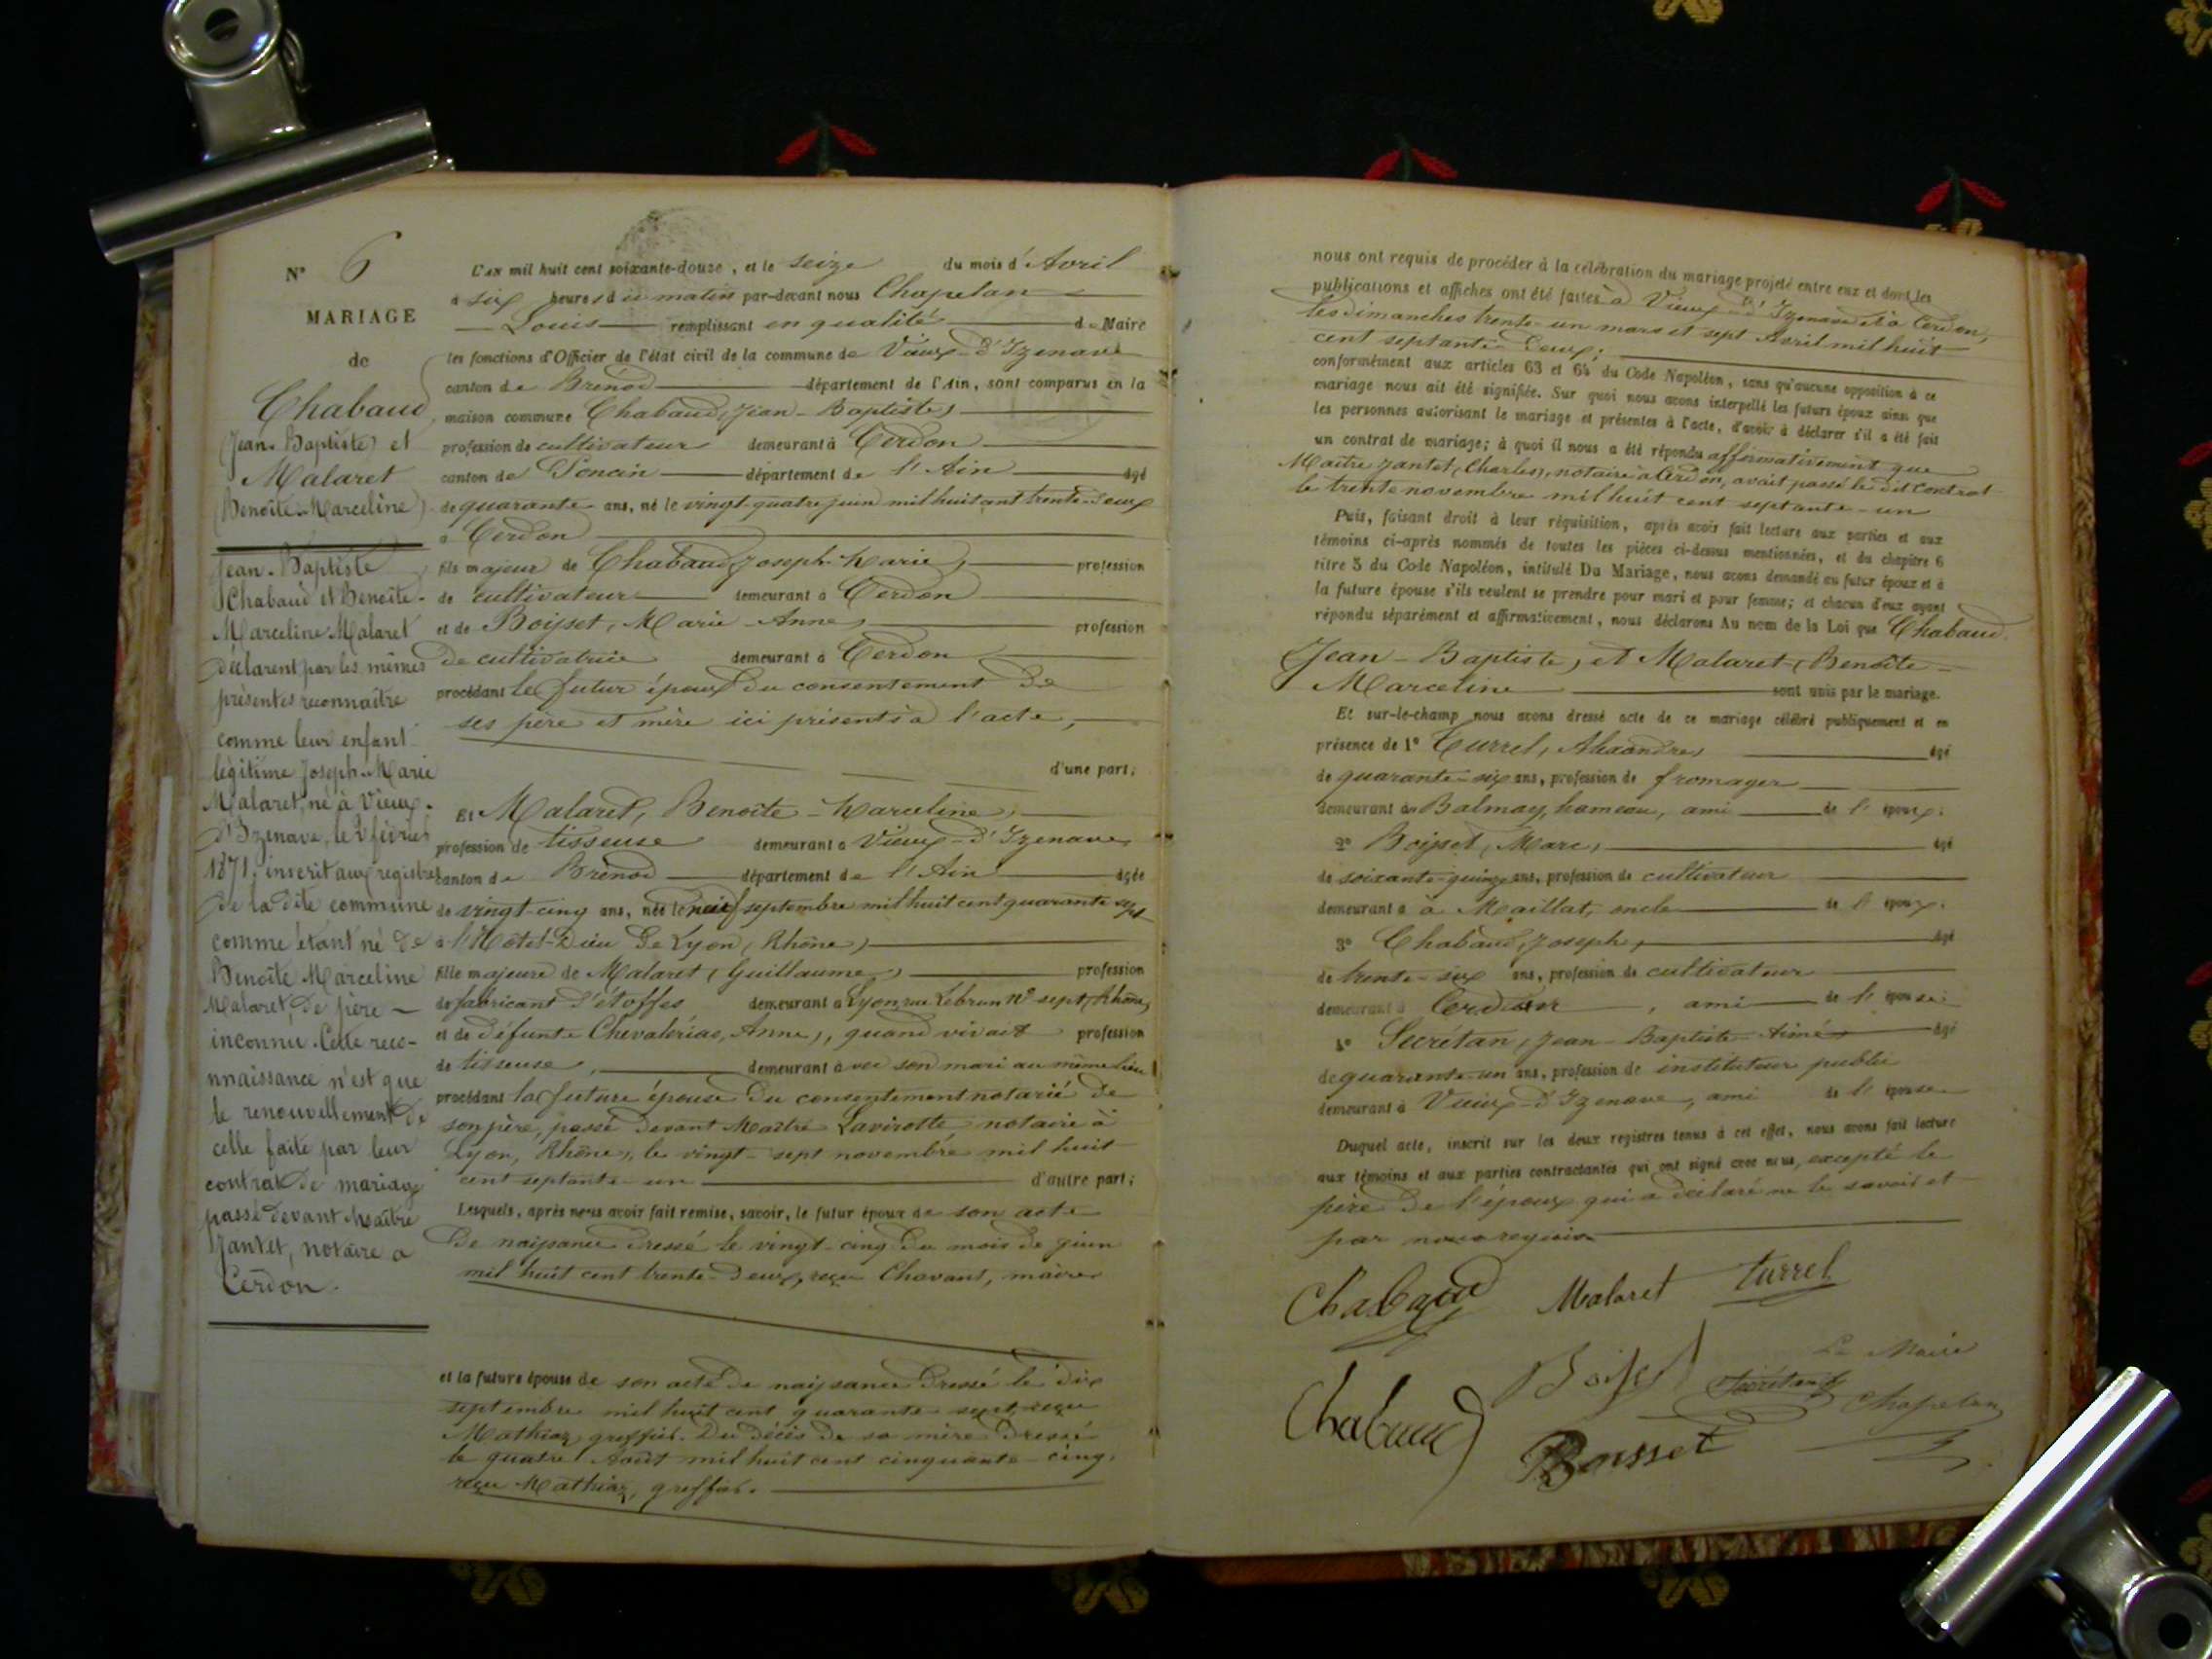 N° 6
MARIAGE
de
Chabaud
(Jean-Baptiste) et
Malaret
(Benoîte-Marceline)
Jean-Baptiste
Chabaud et Benoîte-
Marceline Malaret
déclarent par les mêmes
présentes reconnaître
comme leur enfant
légitime Joseph-Marie
Malaret, né à Vieux-
d'Izenave, le 2 février
1871, inscrit aux registres
de la dite commune
comme étant né de
Benoîte Marceline
Malaret, de père
inconnu. Cette reco-
nnaissance n'est que
le renouvellement de
celle faite par leur
contrat de mariage
passé devant Maître
Jantet, notaire a
Cerdon.
L'an mil huit cent soixante-douze, et le seize du mois d'Avril
à six heures du matin par-devant nous Chapelan
Louis remplissant en qualité de Maire
les fonctions d'Officier de l'état civil de la commune de Vieux-d'Izenave
canton de Brénod département de l'Ain, sont comparus en la
maison commune Chabaud, Jean-Baptiste,
profession de cultivateur demeurant à Cerdon
canton de Poncin département de l'Ain âgé
de quarante ans, né le vingt-quatre juin mil huit cent trente-deux
à Cerdon
fils majeur de Chabaud, Joseph-Marie, profession
de cultivateur demeurant à Cerdon
et de Boisset, Marie-Anne, profession
de cultivatrice demeurant à Cerdon
procédant le futur époux du consentement de
ses père et mère ici présents à l'acte,
d'une part;
Et Malaret, Benoîte-Marceline,
profession de tisseuse demeurant à Vieux-d'Izenave,
canton de Brénod département de l'Ain âgée
de vingt-cinq ans, née le neuf septembre mil huit cent quarante sept
à l'Hôtel-Dieu de Lyon (Rhône)
fille majeure de Malaret (Guillaume) profession
de fabricant d'étoffes demeurant à Lyon, rue Lebrun N° sept, (Rhône)
et de défunte Chevalérias, Anne, quand vivait profession
de tisseuse, demeurant avec son mari au même lieu
procédant la future épouse du consentement notarié de
son père, passé devant Maître Lavirotte, notaire à
Lyon, Rhône, le vingt-sept novembre mil huit
cent septante-un d'autre part;
Lesquels, après nous avoir fait remise, savoir, le futur époux de son acte
de naissance dressé le vingt-cinq du mois de juin
mil huit cent trente-deux, reçu Chavant, maire
et la future épouse de son acte de naissance dressé le dix
septembre mil huit cent quarante sept, reçu
Mathiaz, greffier. Du décès de sa mère dressé
le quatre Août mil huit cent cinquante-cinq,
reçu Mathiaz, greffier.
nous ont requis de procéder à la célébration du mariage projeté entre eux et dont les
publications et affiches ont été faites à Vieux-d'Izenave et à Cerdon,
les dimanches trente-un mars et sept Avril mil huit
cent septante deux;
conformément aux articles 63 et 64 du Code Napoléon, sans qu'aucune opposition à ce
mariage nous ait été signifiée. Sur quoi nous avons interpellé les futurs époux ainsi que
les personnes autorisant le mariage et présentes à l'acte, d'avoir à déclarer s'il a été fait
un contrat de mariage; à quoi il nous a été répondu affirmativement que
Maître Jantet, Charles, notaire à Cerdon, avait passé le dit contrat
le trente novembre mil huit cent septante-un
Puis, faisant droit à leur réquisition, après avoir fait lecture aux parties et aux
témoins ci-après nommés de toutes les pièces ci-dessus mentionnées, et du chapitre 6
titre 5 du Code Napoléon, intitulé Du Mariage, nous avons demandé au futur époux et à
la future épouse s'ils veulent se prendre pour mari et pour femme; et chacun d'eux ayant
répondu séparément et affirmativement, nous déclarons Au nom de la Loi que Chabaud,
Jean-Baptiste, et Malaret, Benoîte-
Marceline sont unis par le mariage.
Et sur-le-champ nous avons dressé acte de ce mariage célébré publiquement et en
présence de 1° Turrel, Alexandre, âgé
de quarante-six ans, profession de fromager
demeurant au Balmay, hameau, ami de l'époux.
2° Boisset, Marc, âgé
de soixante-quinze ans, profession de cultivateur
demeurant à à Maillat, oncle de l'époux.
3° Chabaud, Joseph, âgé
de trente-six ans, profession de cultivateur
demeurant à Cerdon, ami de l'épouse
4° Secrétan, Jean-Baptiste Aimé âgé
de quarante-un ans, profession de instituteur public
demeurant à Vieux-d'Izenave, ami de l'épouse
Duquel acte, inscrit sur les deux registres tenus à cet effet, nous avons fait lecture
aux témoins et aux parties contractantes qui ont signé avec nous, excepté le
père de l'époux qui a déclaré ne le savoir et
par nous requis.
Chabaud Malaret turrel
Boisset Secrétan Le Maire
Chabaud Boisset Chapelan